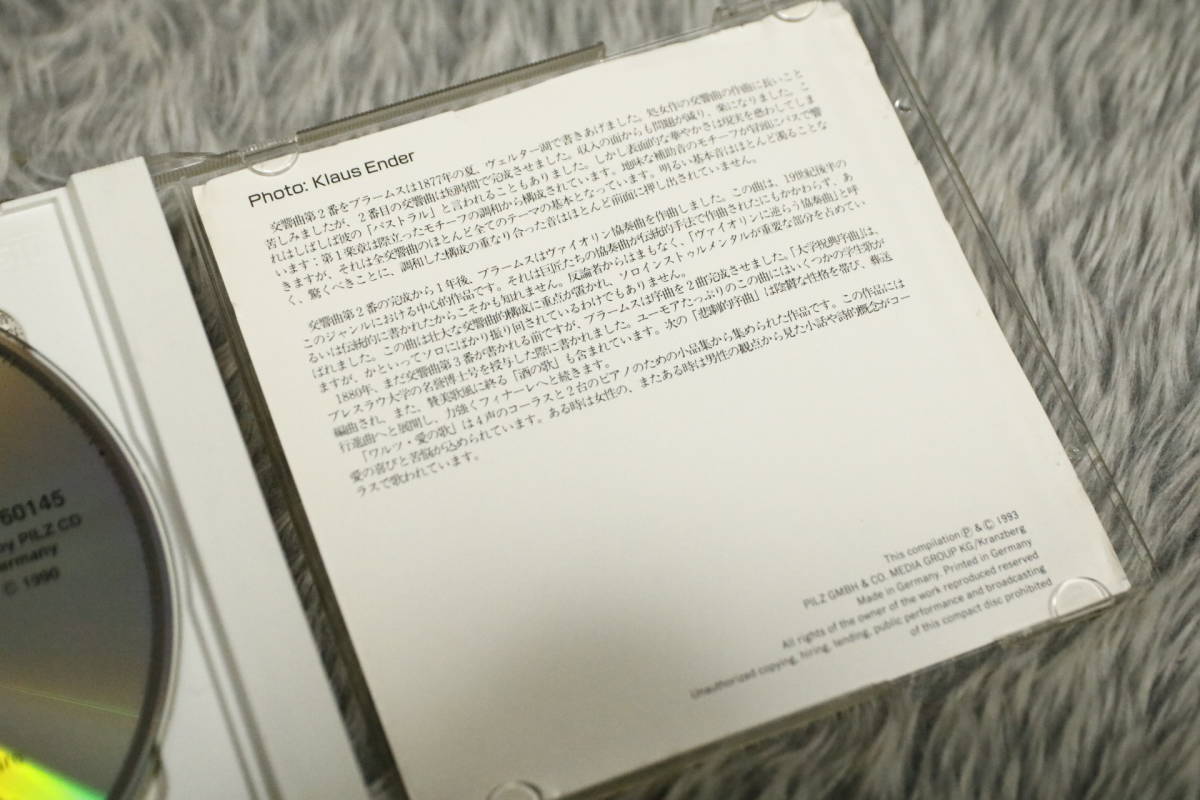 Photo: Klaus Ender
交響曲第2番をブラームスは1877年の夏、ヴェルター湖で書きあげました。処女作の交響曲の作曲に長いこと
苦しみましたが、2番目の交響曲は短時間で完成させました。収入の面からも問題が減り、楽になりました。こ
れはしばしば彼の「パストラル」と言われることもありました。しかし表面的な華やかさは現実を惑わしてしま
います：第1楽章は際立ったモチーフの調和から構成されています。地味な補助音のモチーフが冒頭にバスで響
きますが、それは全交響曲のほとんど全てのテーマの基本となっています。明るい基本音はほとんど濁ることな
く、驚くべきことに、調和した構成の重なり合った音はほとんど前面に押し出されていません。
交響曲第2番の完成から1年後、ブラームスはヴァイオリン協奏曲を作曲しました。この曲は、19世紀後半の
このジャンルにおける中心的作品です。それは巨匠たちの協奏曲が伝統的手法で作曲されたにもかかわらず、あ
るいは伝統的に書かれたからこそかも知れません。反論者からはまもなく、「ヴァイオリンに逆らう協奏曲」と呼
ばれました。この曲は壮大な交響曲的構成に重点が置かれ、ソロインストゥルメンタルが重要な部分を占めてい
ますが、かといってソロにばかり振り回されているわけでもありません。
1880年、まだ交響曲第3番が書かれる前ですが、ブラームスは序曲を2曲完成させました。「大学祝典序曲」は、
ブレスラウ大学の名誉博士号を授与した際に書かれました。ユーモアたっぷりのこの曲にはいくつかの学生歌が
編曲され、また、賛美歌風に終る「酒の歌」も含まれています。次の「悲劇的序曲」は陰鬱な性格を帯び、葬送
行進曲へと展開し、力強くフィナーレへと続きます。
「ワルツ・愛の歌」は4声のコーラスと2台のピアノのための小品集から集められた作品です。この作品には
愛の喜びと苦悩が込められています。ある時は女性の、またある時は男性の観点から見た小話や詩的概念がコー
ラスで歌われています。
60145
by PILZ CD
ermany
© 1990
This compilation Ⓟ & © 1993
PILZ GMBH & CO. MEDIA GROUP KG/Kranzberg
Made in Germany. Printed in Germany
All rights of the owner of the work reproduced reserved
Unauthorized copying, hiring, lending, public performance and broadcasting
of this compact disc prohibited